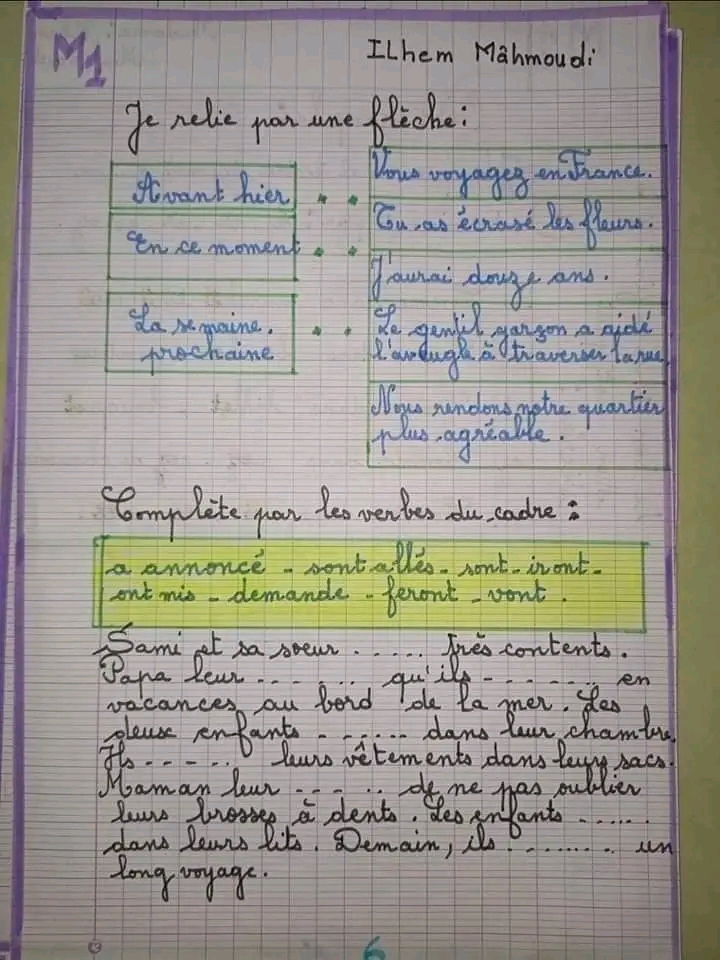 M1
ILhem Mâhmoudi
Je relie par une flèche :
Avant hier
En ce moment
La semaine.
prochaine
Vous voyagez en France.
Tu as écrasé les fleurs.
J'aurai douze ans.
Le gentil garçon a aidé
l'aveugle à traverser la rue
Nous rendons notre quartier
plus agréable.
Complète par les verbes du cadre :
a annoncé - sont allés - sont - iront -
ont mis - demande - feront - vont.
Sami et sa sœur ..... très contents.
Papa leur ....... qu'ils ....... en
vacances au bord de la mer. Les
deux enfants ....... dans leur chambre.
Ils ...... leurs vêtements dans leurs sacs.
Maman leur ...... de ne pas oublier
leurs brosses à dents. Les enfants .....
dans leurs lits. Demain, ils ........ un
long voyage.
6